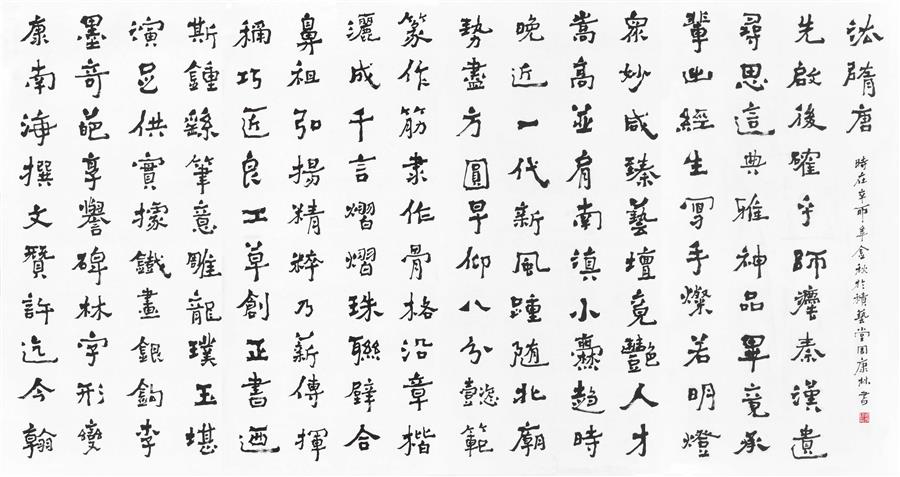 康南海撰文贊許迄今翰
墨奇葩享譽碑林字形變
演足供實據鐵畫銀鉤李
斯鍾繇筆意雕龍璞玉堪
稱巧匠良工草創正書迺
鼻祖弘揚精粹乃薪傳揮
灑成千言熠熠珠聯璧合
篆作筋隶作骨格沿章楷
勢盡方圓早仰八分懿範
晚近一代新風踵随北廟
嵩高並肩南滇小爨趋時
衆妙咸臻藝壇竟艷人才
輩出經生写手燦若明燈
尋思這典雅神品畢竟承
先啟後確乎師灋秦漢遺
隋唐
時在辛卯年金秋於藝堂周康林書